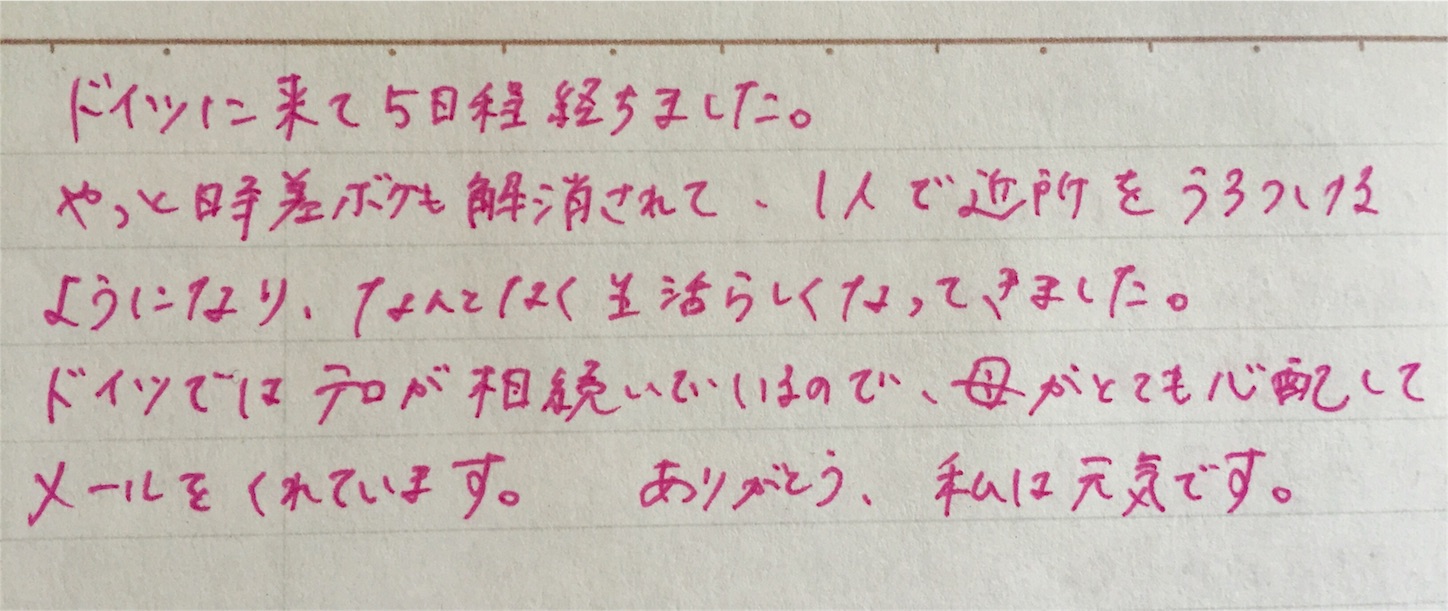 ドイツに来て5日程経ちました。
やっと時差ボケも解消されて、1人で近所をうろつける
ようになり、なんとなく生活らしくなってきました。
ドイツではテロが相続いでいるので、母がとても心配して
メールをくれています。 ありがとう、私は元気です。